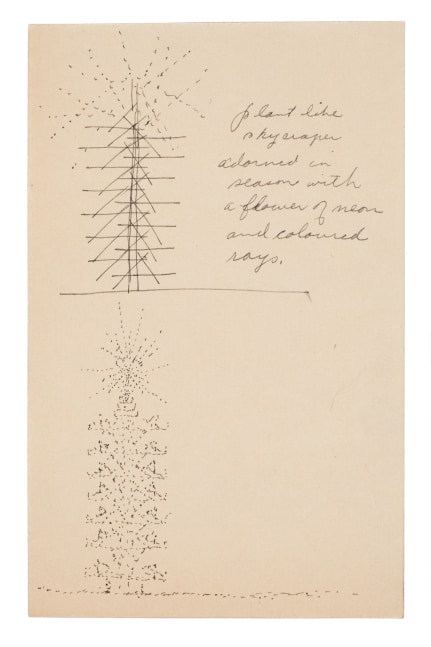 plant like
skyscraper
adorned in
season with
a flower of neon
and coloured
rays.